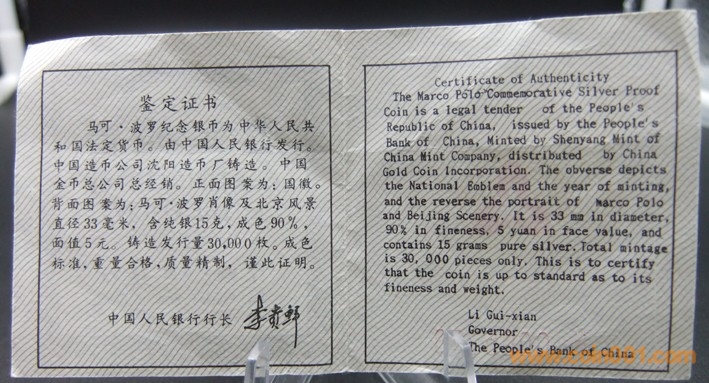 鉴定证书
马可·波罗纪念银币为中华人民共
和国法定货币。由中国人民银行发行。
中国造币公司沈阳造币厂铸造。中国
金币总公司总经销。正面图案为:国徽。
背面图案为:马可·波罗肖像及北京风景
直径33毫米,含纯银15克,成色90%,
面值5元。铸造发行量30,000枚。成色
标准、重量合格,质量精制,谨此证明。
中国人民银行行长 李贵鲜
Certificate of Authenticity
The Marco Polo Commemorative Silver Proof
Coin is a legal tender of the People's
Republic of China, issued by the People's
Bank of China, Minted by Shenyang Mint of
China Mint Company, distributed by China
Gold Coin Incorporation. The obverse depicts
the National Emblem and the year of minting,
and the reverse the portrait of Marco Polo
and Beijing Scenery. It is 33 mm in diameter,
90% in fineness, 5 yuan in face value, and
contains 15 grams pure silver. Total mintage
is 30, 000 pieces only. This is to certify
that the coin is up to standard as to its
fineness and weight.
Li Gui-xian
Governor
The People's Bank of China
www.coin001.com